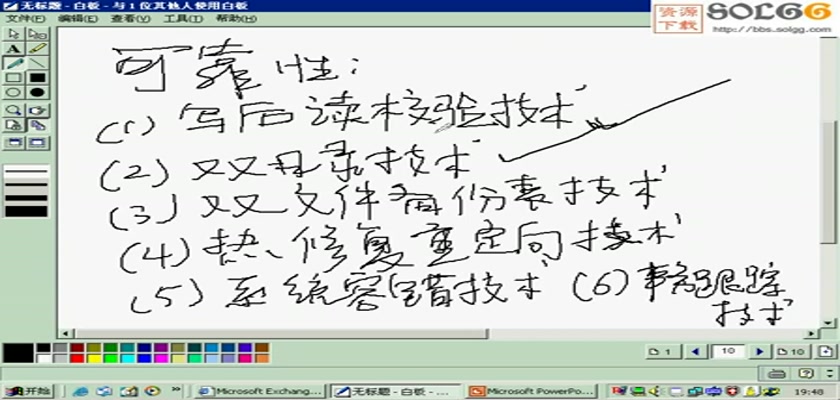 无标题 - 白板 - 与 1 位其他人使用白板
文件(F) 编辑(E) 查看(V) 工具(T) 帮助(H)
资源下载
SOLGG
http://bbs.solgg.com
可靠性:
(1) 写后读校验技术
(2) 双目录技术
(3) 双文件备份表技术
(4) 热修复重定向技术
(5) 系统容错技术 (6) 事务跟踪
技术
1 10 10
开始 Microsoft Exchang... 无标题 - 白板 - ... Microsoft PowerPo... 19:48